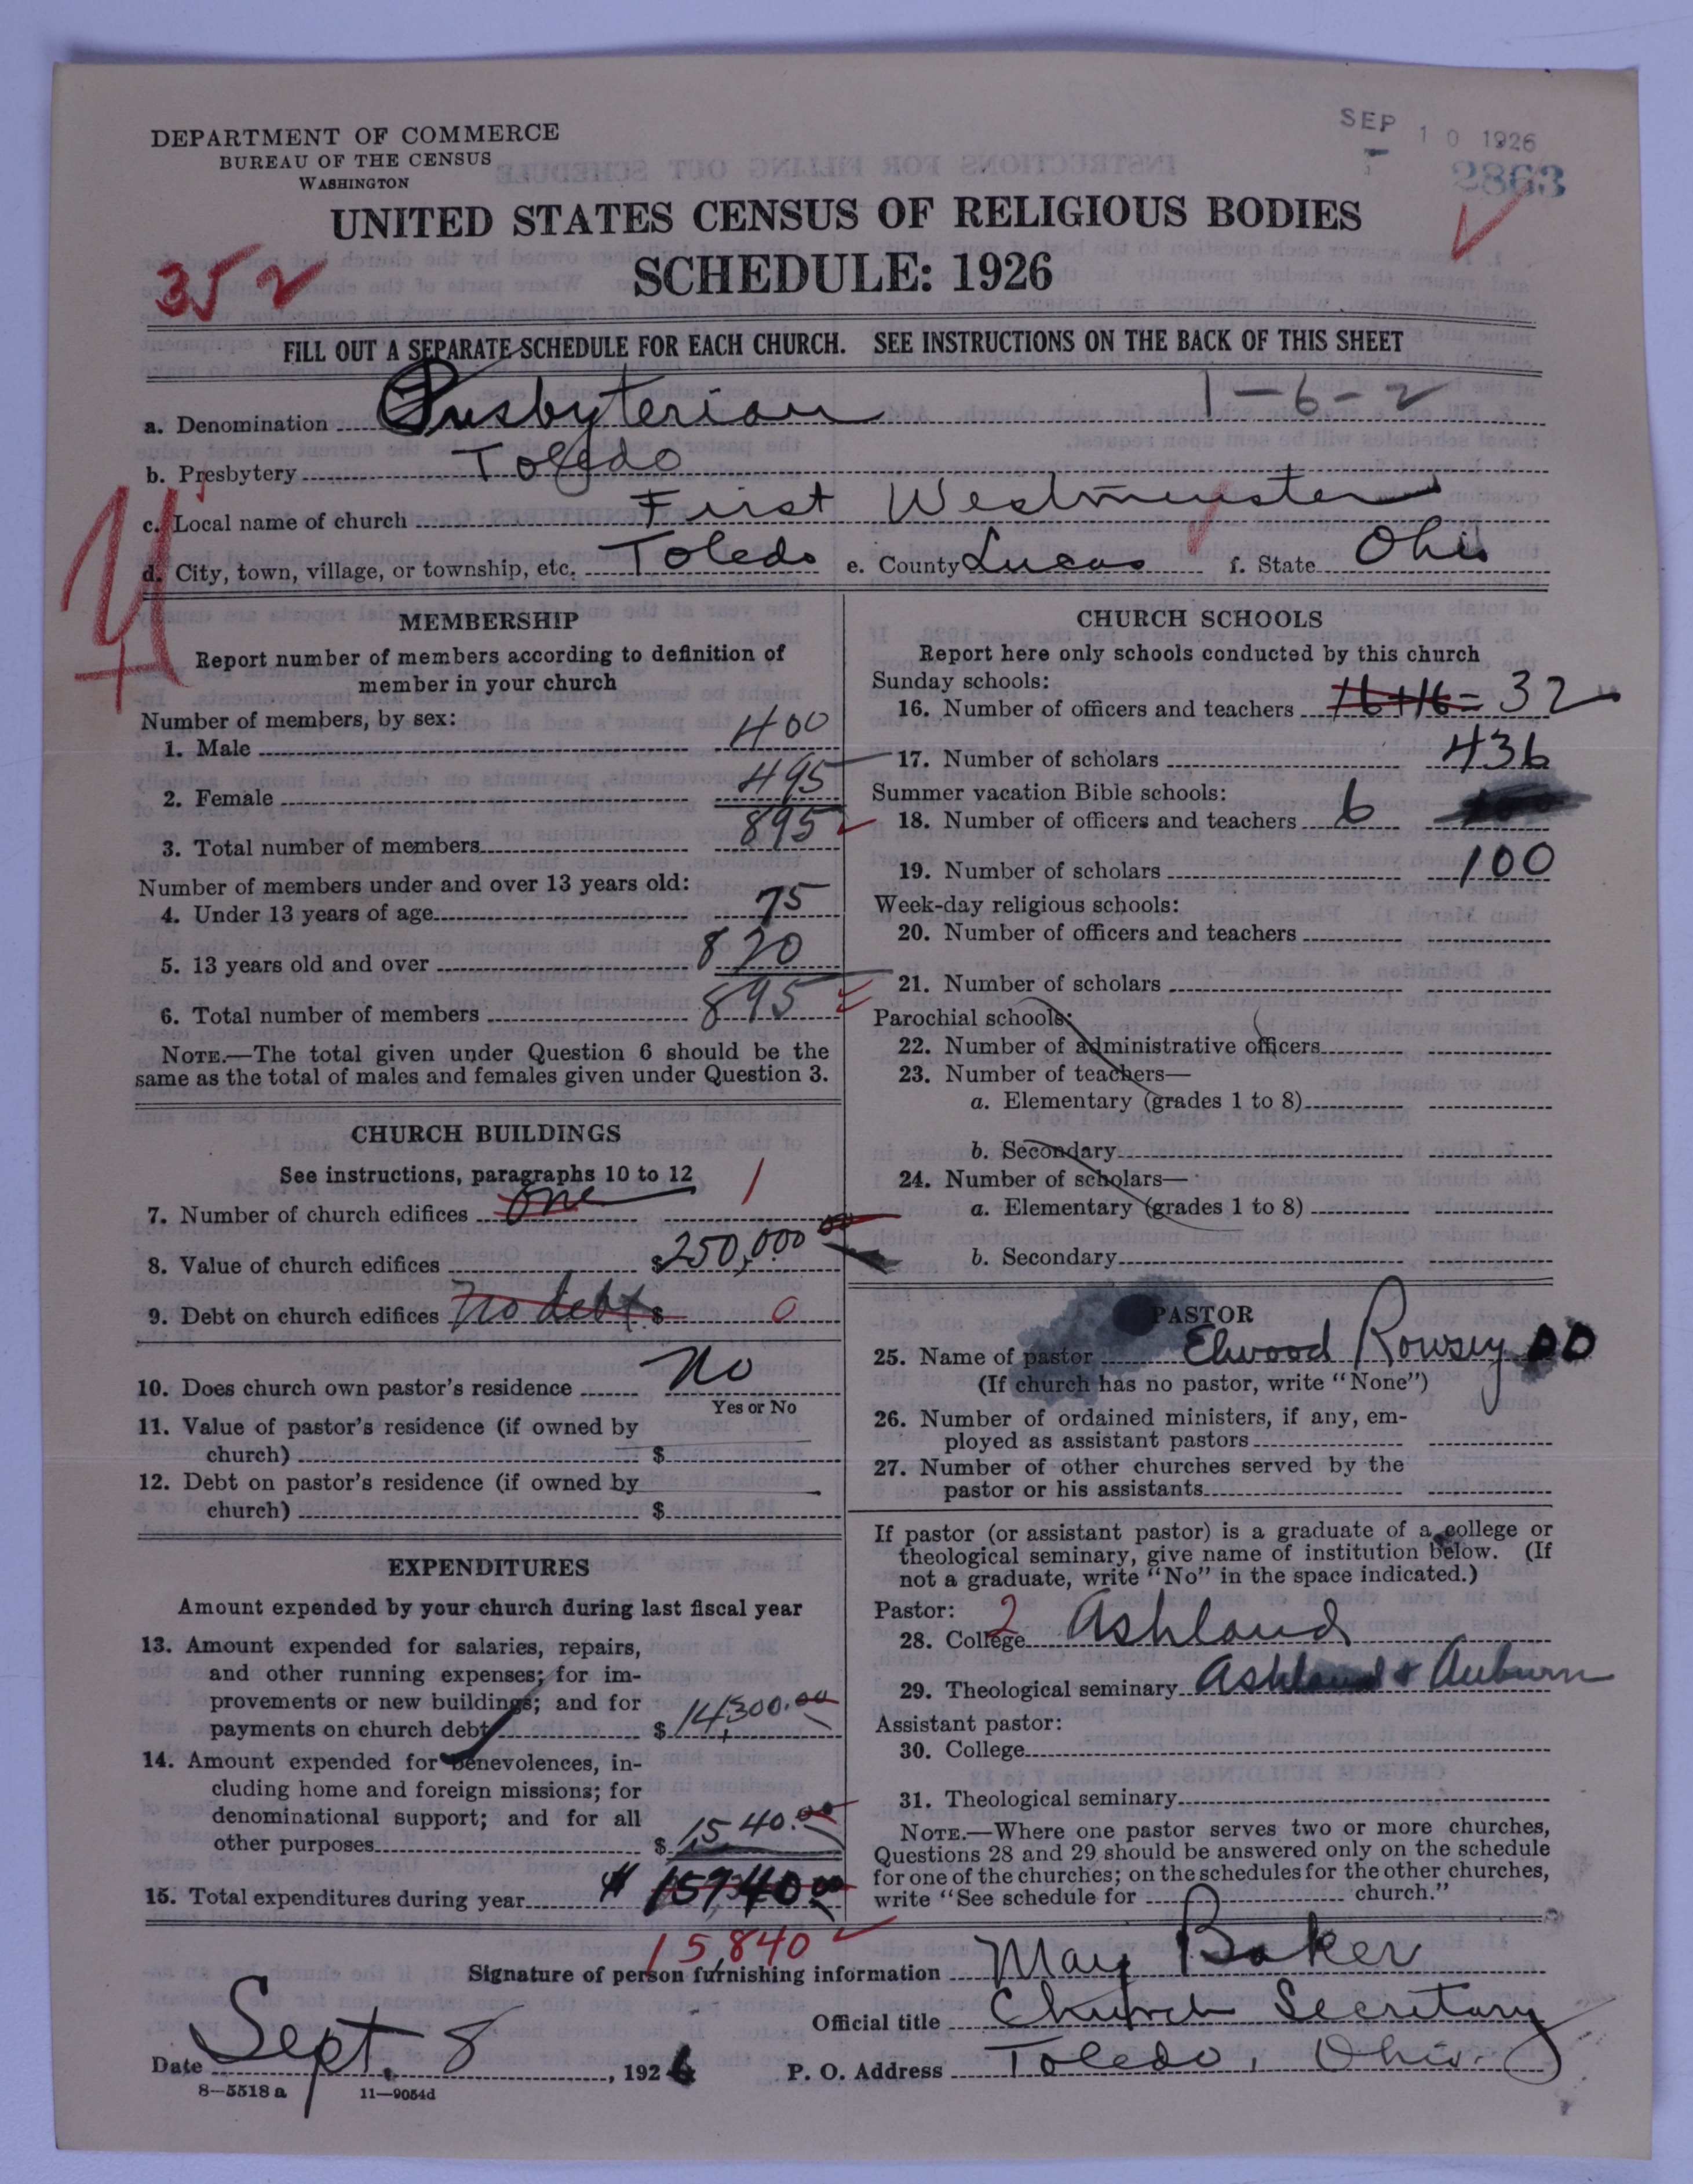 DEPARTMENT OF COMMERCE
BUREAU OF THE CENSUS
WASHINGTON
SEP 10 1926
2863
UNITED STATES CENSUS OF RELIGIOUS BODIES
SCHEDULE: 1926
352
FILL OUT A SEPARATE SCHEDULE FOR EACH CHURCH. SEE INSTRUCTIONS ON THE BACK OF THIS SHEET
1-6-2
a. Denomination Presbyterian
b. Presbytery Toledo
c. Local name of church First Westminster
d. City, town, village, or township, etc. Toledo e. County Lucas f. State Ohio
MEMBERSHIP
Report number of members according to definition of
member in your church
Number of members, by sex:
1. Male 400
2. Female 495
3. Total number of members 895
Number of members under and over 13 years old:
4. Under 13 years of age 75
5. 13 years old and over 820
6. Total number of members 895
NOTE.—The total given under Question 6 should be the
same as the total of males and females given under Question 3.
CHURCH BUILDINGS
See instructions, paragraphs 10 to 12
7. Number of church edifices one 1
8. Value of church edifices $250,000 00
9. Debt on church edifices No debt $ 0
10. Does church own pastor's residence No
Yes or No
11. Value of pastor's residence (if owned by
church) $
12. Debt on pastor's residence (if owned by
church) $
EXPENDITURES
Amount expended by your church during last fiscal year
13. Amount expended for salaries, repairs,
and other running expenses; for im-
provements or new buildings; and for
payments on church debt $ 14,300.00
14. Amount expended for benevolences, in-
cluding home and foreign missions; for
denominational support; and for all
other purposes $ 1540.00
15. Total expenditures during year $ 15740 00
15840
CHURCH SCHOOLS
Report here only schools conducted by this church
Sunday schools:
16. Number of officers and teachers 16+16= 32
17. Number of scholars 436
Summer vacation Bible schools:
18. Number of officers and teachers 6
19. Number of scholars 100
Week-day religious schools:
20. Number of officers and teachers
21. Number of scholars
Parochial schools:
22. Number of administrative officers
23. Number of teachers—
a. Elementary (grades 1 to 8)
b. Secondary
24. Number of scholars—
a. Elementary (grades 1 to 8)
b. Secondary
PASTOR
25. Name of pastor Elwood Rowsey DD
(If church has no pastor, write "None")
26. Number of ordained ministers, if any, em-
ployed as assistant pastors
27. Number of other churches served by the
pastor or his assistants
If pastor (or assistant pastor) is a graduate of a college or
theological seminary, give name of institution below. (If
not a graduate, write "No" in the space indicated.)
Pastor: 2
28. College Ashland
29. Theological seminary Ashland & Auburn
Assistant pastor:
30. College
31. Theological seminary
NOTE.—Where one pastor serves two or more churches,
Questions 28 and 29 should be answered only on the schedule
for one of the churches; on the schedules for the other churches,
write "See schedule for church."
Signature of person furnishing information May Baker
Official title Church Secretary
Date Sept 8, 1926 P. O. Address Toledo, Ohio.
8—5518 a 11—9054d